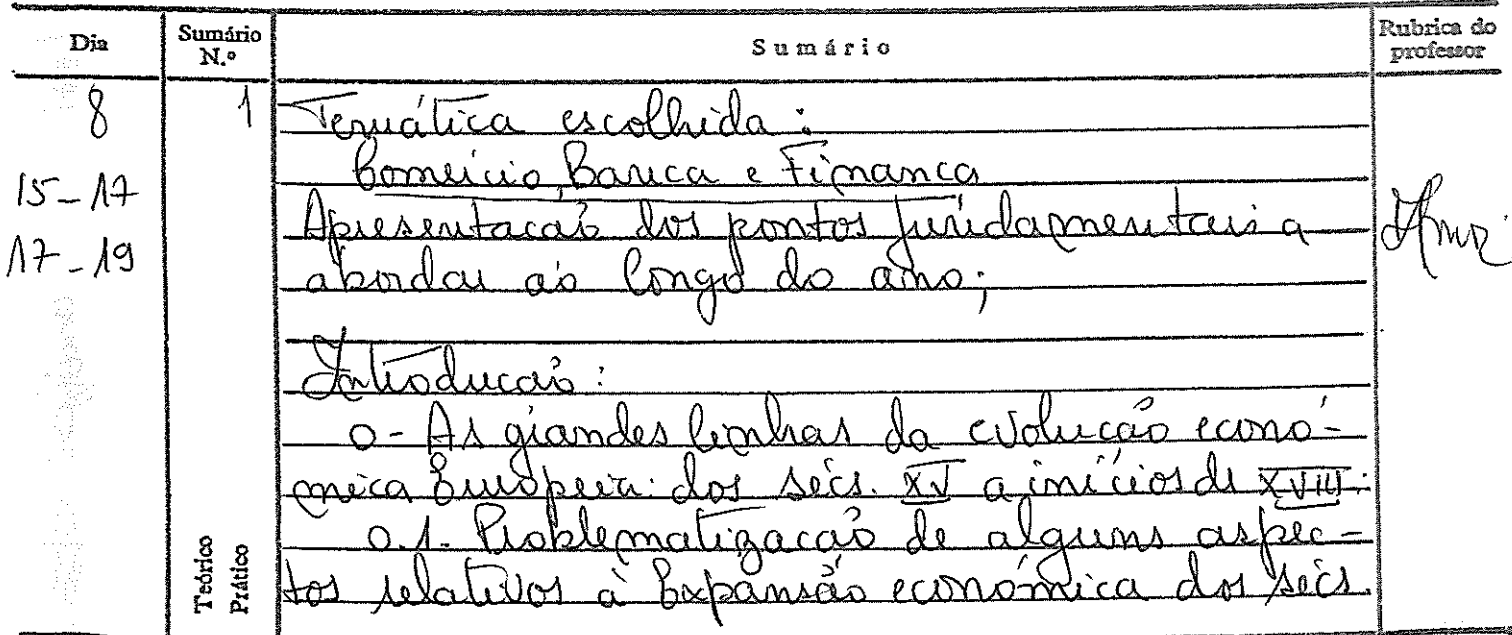 Dia Sumário N.º Sumário Rubrica do professor
8 1 Temática escolhida:
Comércio, Banca e Finança
15-17 Apresentação dos pontos fundamentais a
17-19 abordar ao longo do ano;
Introdução:
0- As grandes linhas da evolução econó-
mica Europeia: dos sécs. XV a inícios de XVIII:
0.1. Problematização de alguns aspec-
tos relativos à Expansão económica dos sécs.
Teórico
Prático